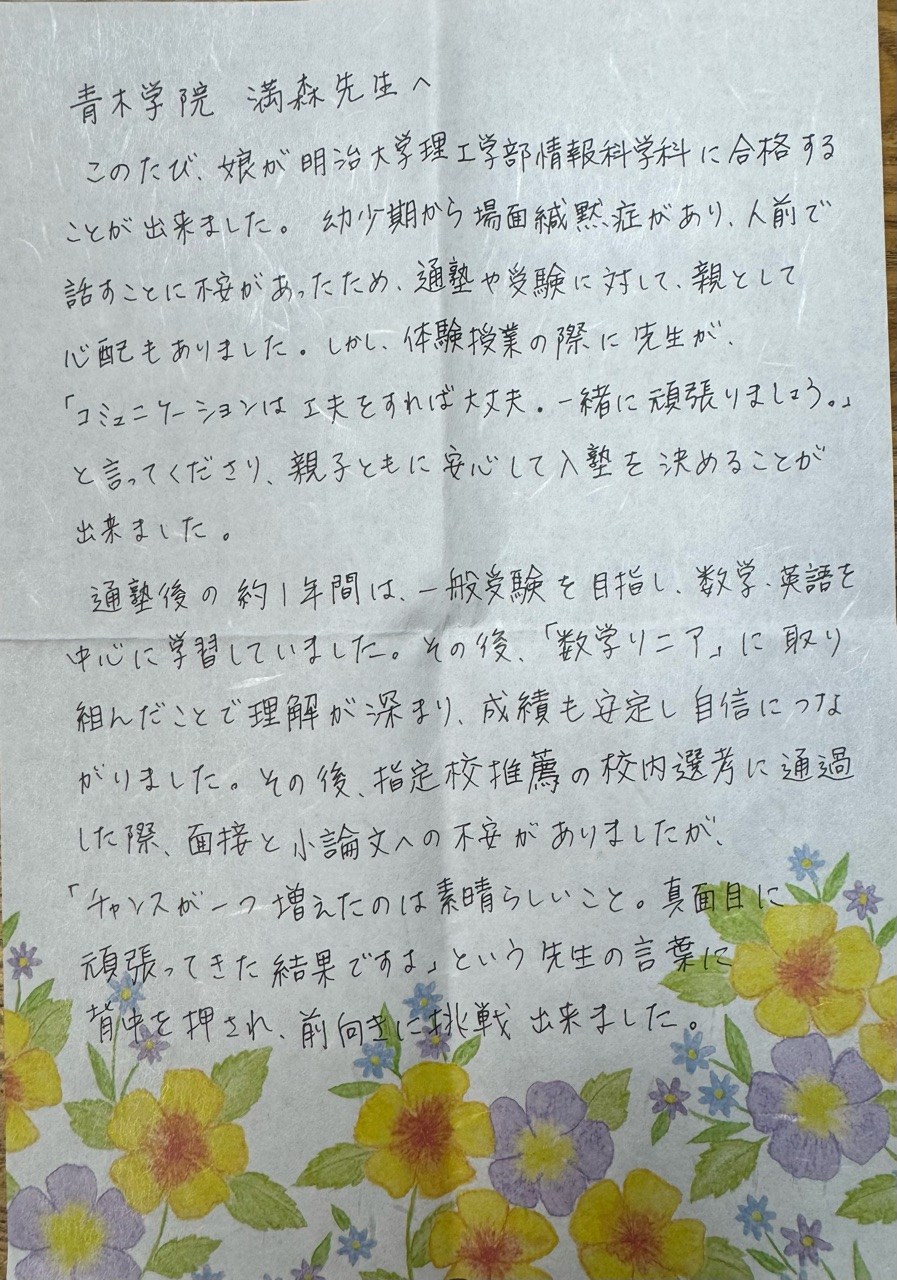 青木学院 満森先生へ
このたび、娘が明治大学理工学部情報科学科に合格する
ことが出来ました。幼少期から場面緘黙症があり、人前で
話すことに不安があったため、通塾や受験に対して、親として
心配もありました。しかし、体験授業の際に先生が、
「コミュニケーションは工夫をすれば大丈夫。一緒に頑張りましょう。」
と言ってくださり、親子ともに安心して入塾を決めることが
出来ました。
通塾後の約1年間は、一般受験を目指し、数学、英語を
中心に学習していました。その後、「数学リニア」に取り
組んだことで理解が深まり、成績も安定し自信につな
がりました。その後、指定校推薦の校内選考に通過
した際、面接と小論文への不安がありましたが、
「チャンスが一つ増えたのは素晴らしいこと。真面目に
頑張ってきた結果ですよ」という先生の言葉に
背中を押され、前向きに挑戦出来ました。